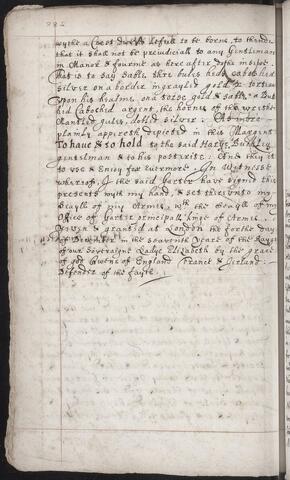 to be borne, to thende
that it shall not be preiudiciall to any Gentleman
in Manor & fourme as here after
That is to say Sable, thre bules hedes Cabochid
silver on a border ingrayled gold
upon his healme, on a torse gold & Sable, a Bul
hed Cabochid argent, the hornes of
Mantled gules, dobled silver: As more
plainly appereth depicted in this Margent
To haue & to hold to the said
gentelman & to his posterite. And they it
to vse & Enioy for euermore. In wytnesse
wherrof I the said Garter have signed this
presents with my hand, & set therunto my
Sealle of my Armes, wth the Sealle of my
Office of Garter principall kinge of Armes
& granted at London the forthe day
of in the Yeare of the
of our Soveraigne Ladye Elizabeth by the grace
of god Qwene of England France & Ireland
Defendor of the faith